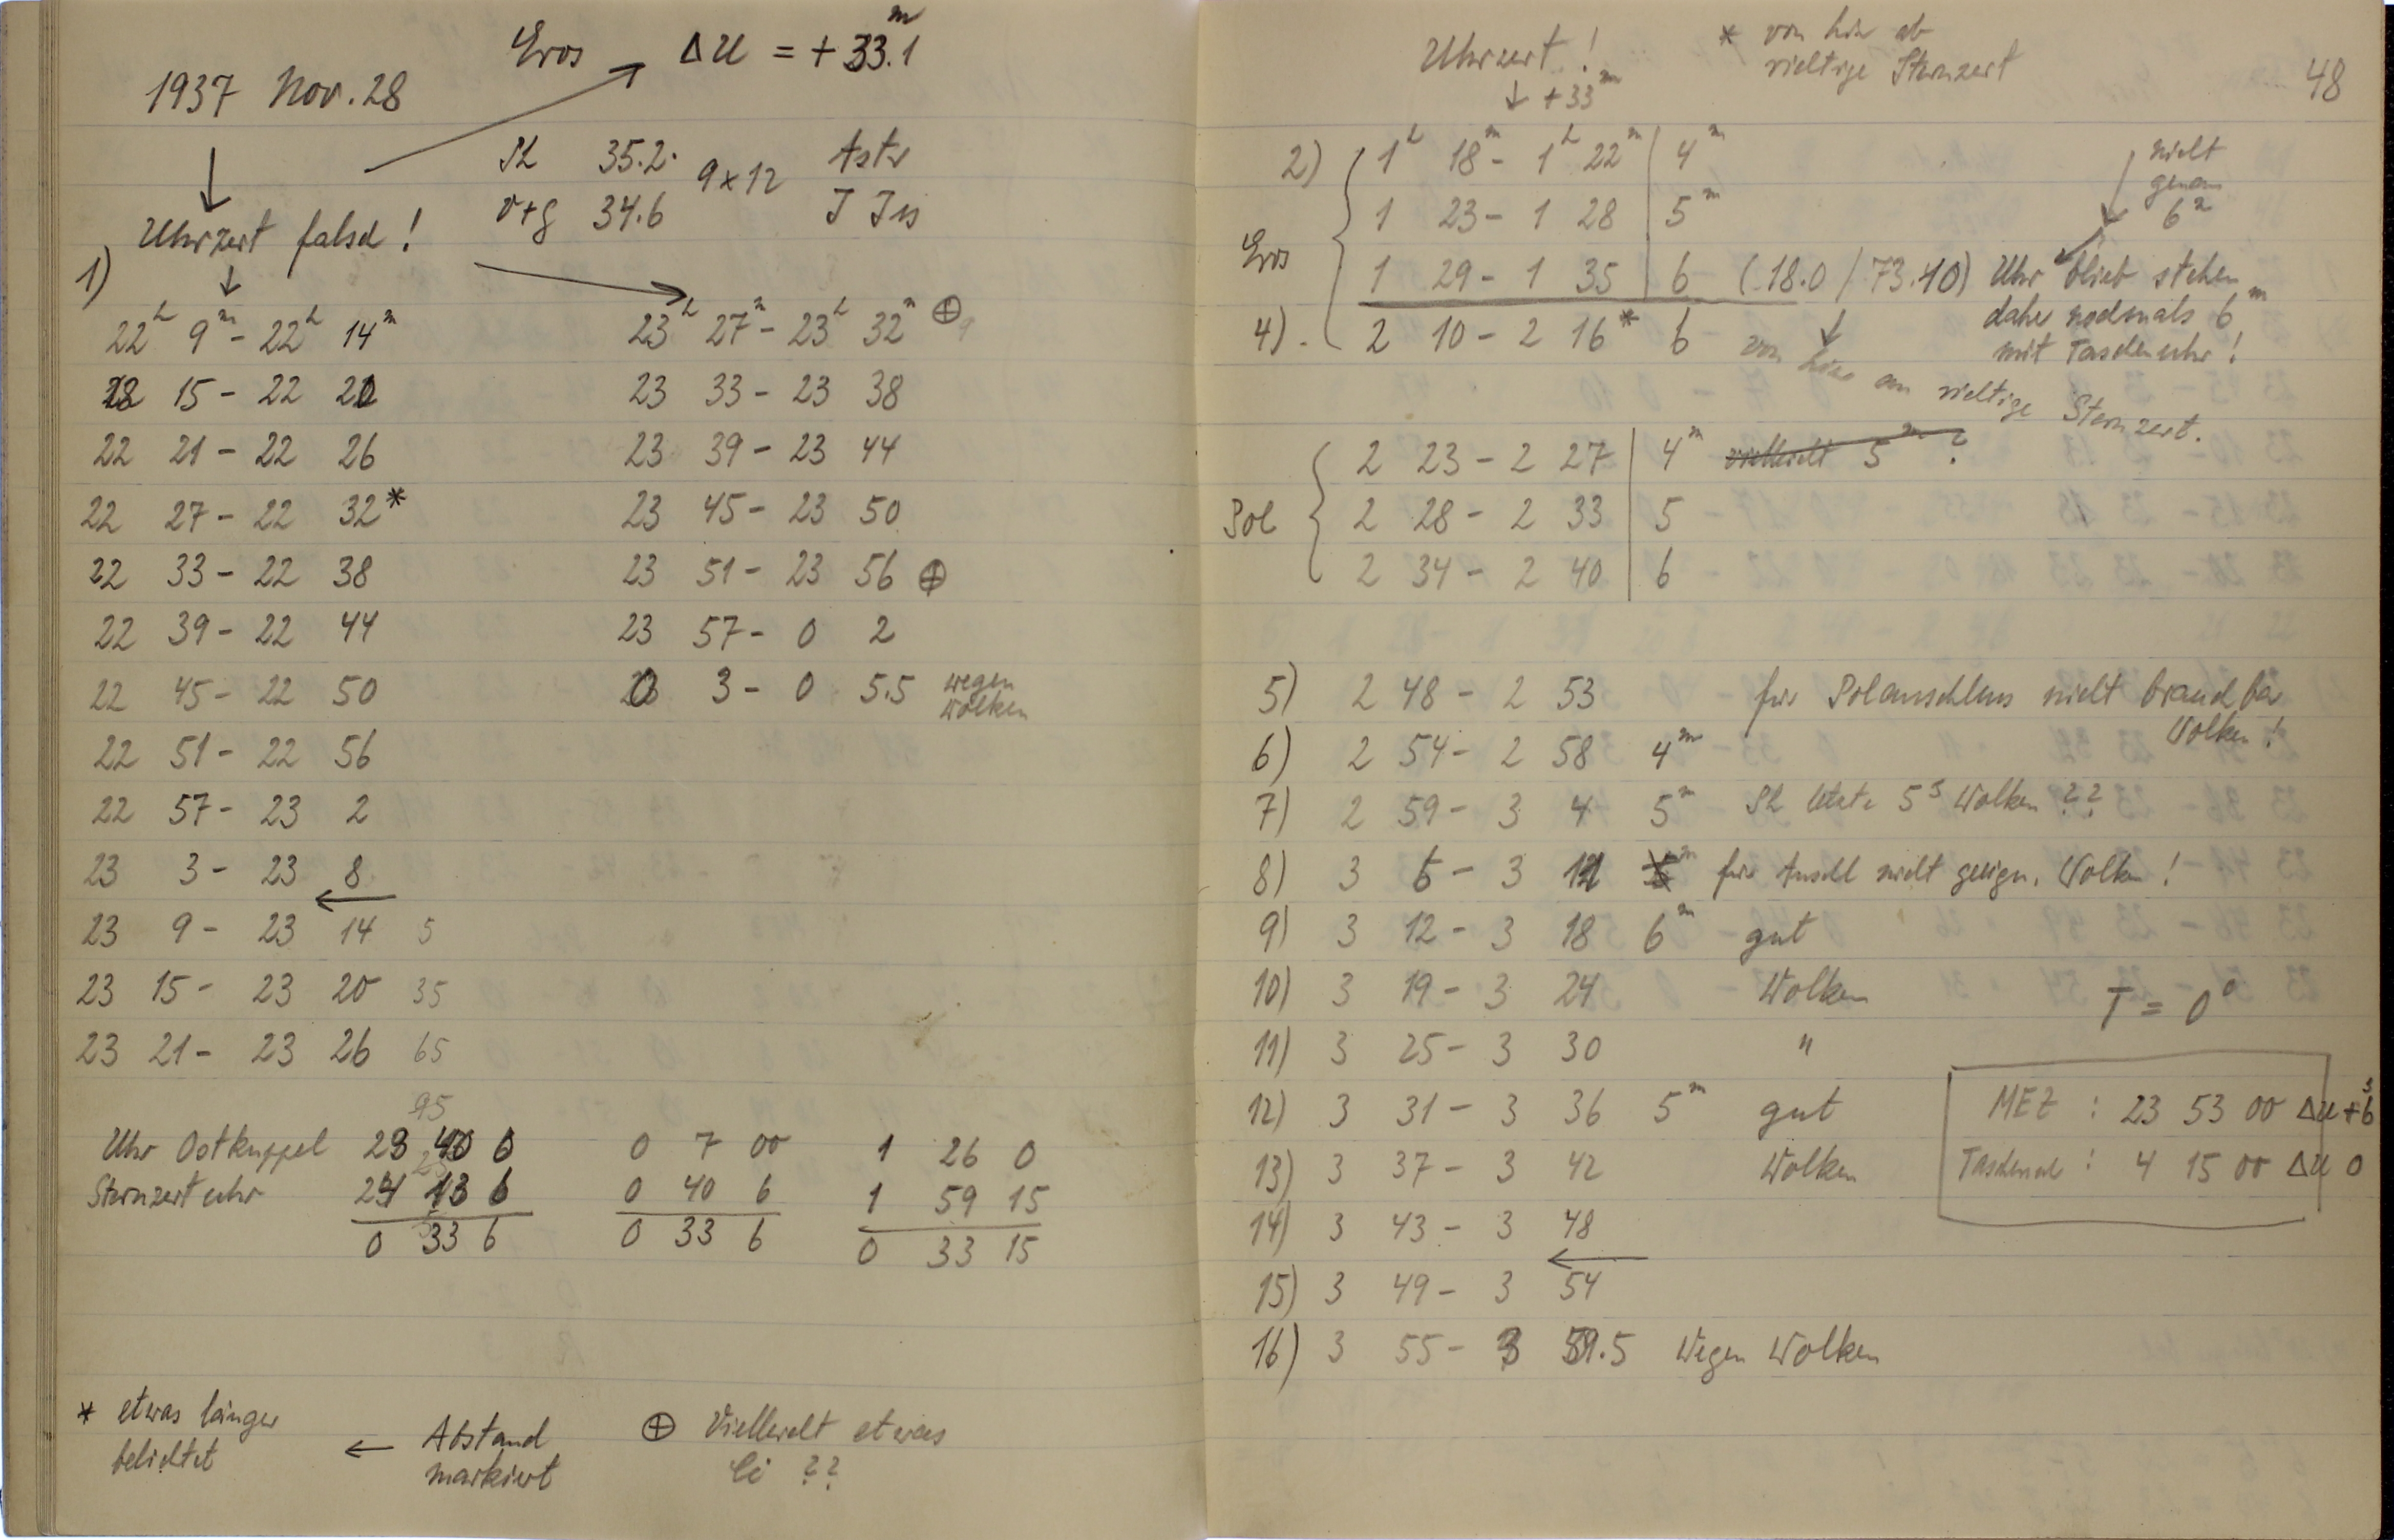 Eros ΔU = + 33.1ᵐ
1937 Nov. 28
Sh 35.2. 9x12 Astr
v+g 34.6 J Jis
Uhrzeit falsch!
1)
22ʰ 9ᵐ - 22ʰ 14ᵐ
22 15 - 22 20
22 21 - 22 26
22 27 - 22 32*
22 33 - 22 38
22 39 - 22 44
22 45 - 22 50
22 51 - 22 56
22 57 - 23 2
23 3 - 23 8
←
23 9 - 23 14 5
23 15 - 23 20 35
23 21 - 23 26 65
95
23ʰ 27ᵐ - 23ʰ 32ᵐ ⊕
23 33 - 23 38
23 39 - 23 44
23 45 - 23 50
23 51 - 23 56 ⊕
23 57 - 0 2
0 3 - 0 5.5 wegen Wolken
Uhr Ostkuppel 23 40 0 0 7 00 1 26 0
Sternzeituhr 24 13 6 0 40 6 1 59 15
0 33 6 0 33 6 0 33 15
* etwas länger
belichtet
← Abstand
markiert
⊕ Vielleicht etwas
Ci ??
48
Uhrzeit!
↓ +33ᵐ
* von hier ab
richtige Sternzeit
2) 1ʰ 18ᵐ - 1ʰ 22ᵐ 4ᵐ
1 23 - 1 28 5ᵐ
Eros
1 29 - 1 35 6 (18.0 / 73.10) Uhr blieb stehen
daher nochmals 6ᵐ
mit Taschenuhr!
nicht
genau
6ᵐ
4) 2 10 - 2 16* 6
von hier an richtige Sternzeit.
2 23 - 2 27 4ᵐ vielleicht 5ᵐ ?
Pol 2 28 - 2 33 5
2 34 - 2 40 6
5) 2 48 - 2 53 für Polanschluss nicht brauchbar
Wolken!
6) 2 54 - 2 58 4ᵐ
7) 2 59 - 3 4 5ᵐ Sh letzte 5ˢ Wolken ??
8) 3 6 - 3 11 für Anschl nicht geeign. Wolken!
9) 3 12 - 3 18 6ᵐ gut
10) 3 19 - 3 24 Wolken
11) 3 25 - 3 30 "
12) 3 31 - 3 36 5ᵐ gut
13) 3 37 - 3 42 Wolken
14) 3 43 - 3 48
←
15) 3 49 - 3 54
16) 3 55 - 3 59.5 Wegen Wolken
T = 0°
MEZ : 23 53 00 ΔU +6ˢ
Taschenuhr : 4 15 00 ΔU 0